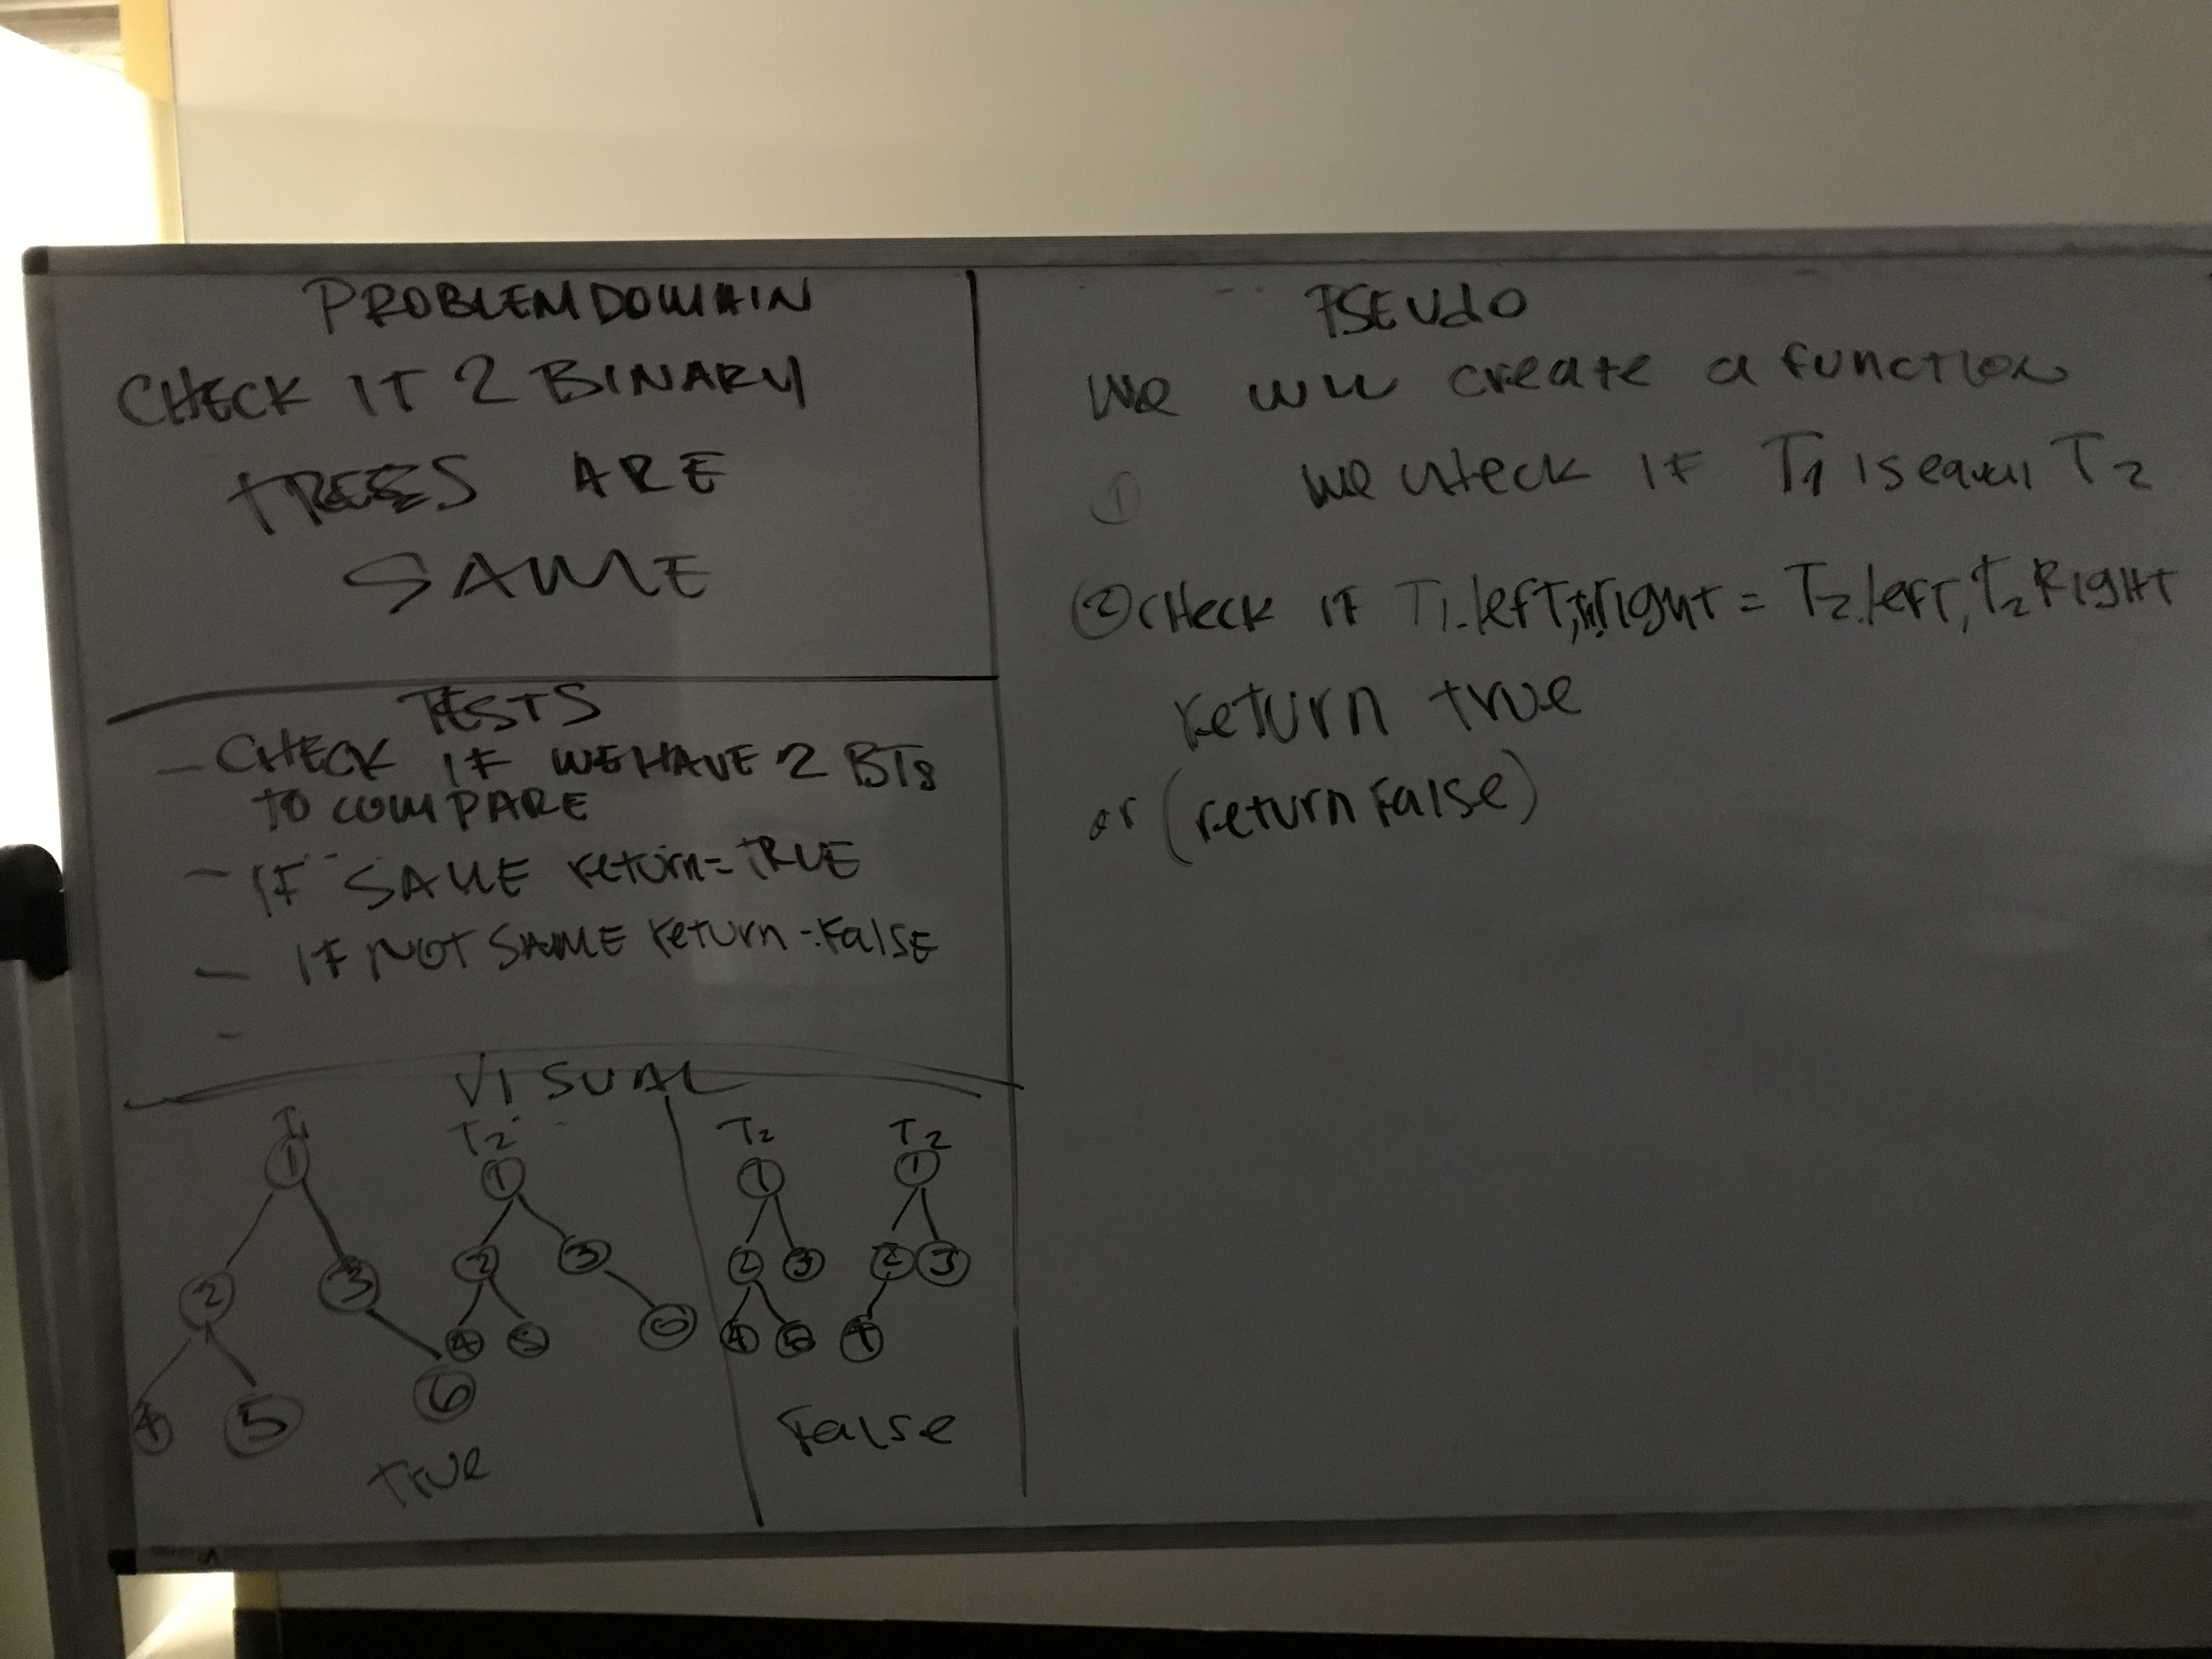 PROBLEM DOMAIN
CHECK IF 2 BINARY
TREES ARE
SAME
TESTS
- CHECK IF WE HAVE 2 BTs
TO COMPARE
- IF SAME return = TRUE
- IF NOT SAME return = False
-
VISUAL
T1 T2
1 1
2 3 2 3
4 5 6 4 5 6
True
T2 T2
1 1
2 3 2 3
4 5 4
False
PSEUdO
we will create a function
① we check if T1 is equal T2
② cHeck if T1.left, right = T2.left, T2 Right
return true
or (return False)